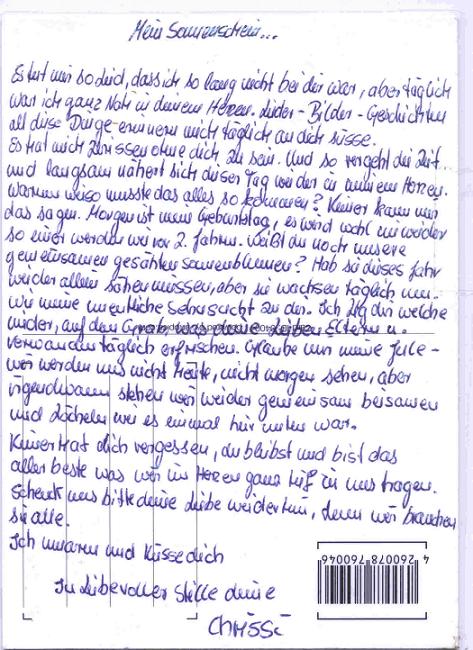 Mein Sonnenschein...
Es tut mir so leid, dass ich so lang nicht bei dir war, aber täglich
war ich ganz Nah in deinem Herzen. Lieder - Bilder - Geschichten
all diese Dinge erinnern mich täglich an dich süsse.
Es hat mich zerrissen ohne dich zu sein. Und so vergeht die Zeit...
und langsam nähert sich dieser Tag wieder in meinem Herzen.
warum wieso musste das alles so kommen? Keiner kann mir
das sagen. Morgen ist mein Geburtstag, es wird wohl nie wieder
so einer werden wie vor 2. Jahren. Weißt du noch unsere
gemeinsamen gesähten sonnenblumen? Hab sie dieses Jahr
wieder allein sähen müssen, aber sie wachsen täglich nun.
wie meine unentliche sehnsucht zu dir. Ich leg dir welche
nieder, auf dem Grab, das deine lieben Eltern u.
verwandten täglich erfrischen. Glaube mir meine Jule -
wir werden uns nicht Heute, nicht morgen sehen, aber
irgendwann stehen wir wieder gemeinsam beisamen
und lächeln wie es einmal hier unten war.
Keiner hat dich vergessen, du bleibst und bist das
aller beste was wir im Herzen ganz tief in uns tragen.
Schenk uns bitte deine Liebe weiterhin, denn wir brauchen
sie alle.
Ich umarm und Küsse dich
In Liebevoller Stille deine
Chrissi
4 260078 760046